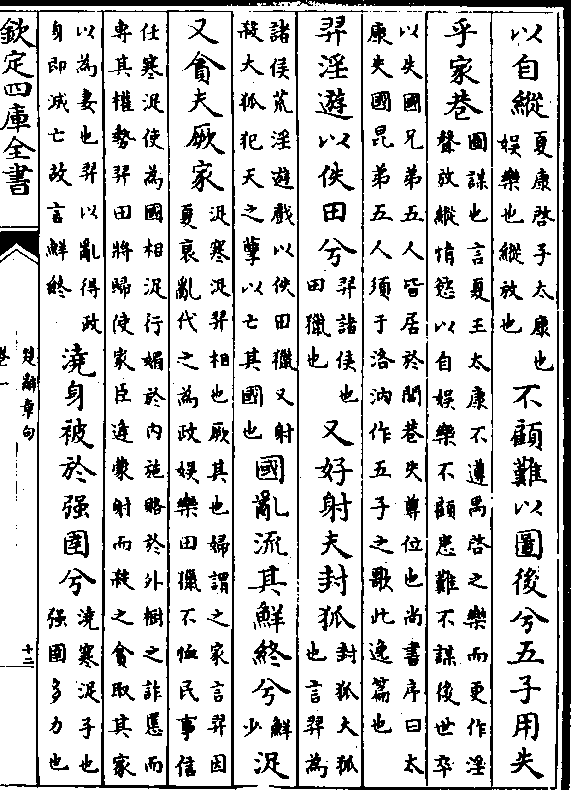 以自縱夏康啓子太康也娛樂也縱放也不顧難以圖後兮五子用失
乎家巷圖謀也言夏王太康不遵禹啓之樂而更作淫聲放縱情慾以自娛樂不顧患難不謀後世卒
以失國兄弟五人皆居於閭巷失尊位也尚書序曰太康失國昆弟五人須于洛汭作五子之歌此逸篇也
羿淫遊以佚田兮羿諸侯也田獵也又好射夫封狐封狐大狐也言羿為
諸侯荒淫遊戲以佚田獵又射殺大狐犯天之孽以亡其國也國亂流其鮮終兮鮮少浞
又貪夫厥家浞寒浞羿相也厥其也婦謂之家言羿因夏衰亂代之為政娛樂田獵不恤民事信
任寒浞使為國相浞行媚於内施賂於外樹之詐慝而專其權勢羿田將歸使家臣逢蒙射而殺之貪取其家
以為妻也羿以亂得政身即滅亡故言鮮終澆身被於强圉兮澆寒浞子也强圉多力也
欽定四庫全書
楚辭章句
卷一
十二